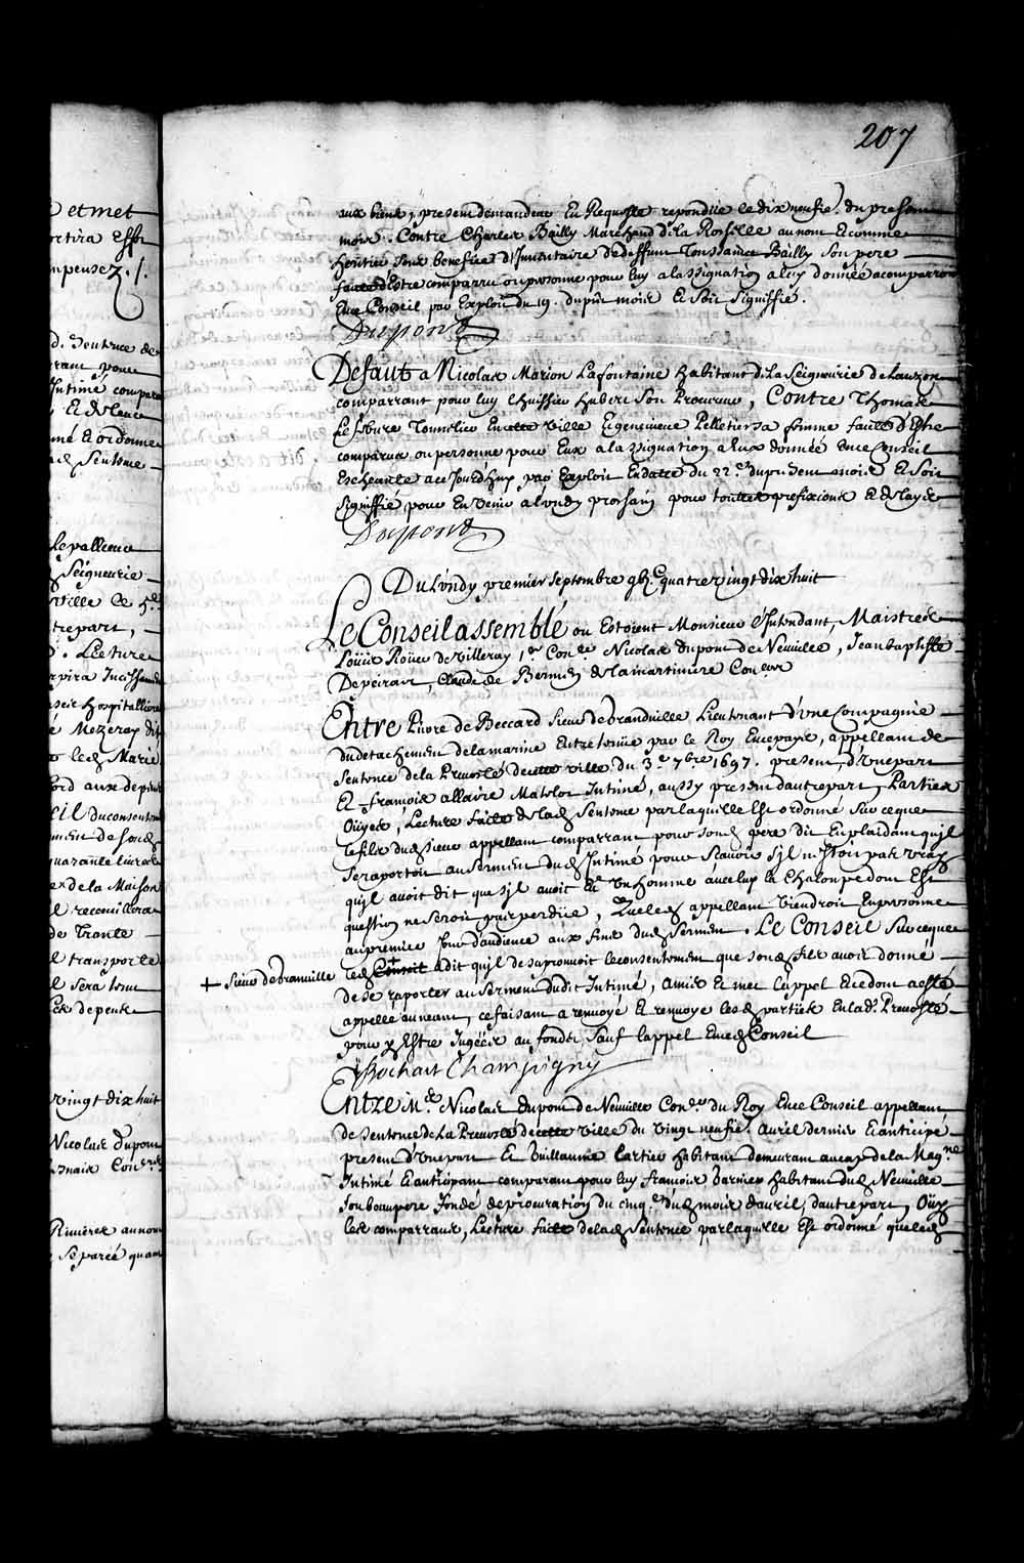 207
et met
rtira Effet
mpensez ./.
d. Sentence de
rant pour
Intimé compar
Et de lad
mé Et ordonne
ad Sentence
le palleur
Seigneurie
ville ce 5e
trepart,
. Lecture
Hospitallieres
Mezeray dit
led Marié
ord aux depens
eil du consentem
ment de sond
quarante livres
de la Maison
l receuillera
de Trante
l transporte
l sera tenu
de pente
vingt dix huit
Nicolas dupont
Rivieres au nom
Separée quant
aux biens, present demandeur En Requeste repondüe le dix neufie. du present
mois. Contre Charles Bailly Marchand de la Rochelle au nom Et comme
heritier Sous benefice d'Inventaire de deffunt Toussainct Bailly Son pere
faute d'Estre comparu ou personne pour luy a lassignation a luy donnée a comparroir
En ce Conseil par Exploit du 19. dupnt mois Et Soit Signiffié.
Dupont
Defaut a Nicolas Marion Lafontaine habitant de la Seigneurie de Lauzon
comparant pour luy l'huissier hubert Son Procureur, Contre Thomas
Lefebure Tonnelier En cette ville Et genevieve Pelletier sa femme faute d'Estre
comparus ou personne pour Eux a lassignation a Eux donnée En ce Conseil
Escheante a ce Jourd'huy par Exploit En datte du 22.e du present mois Et Soit
Signiffié pour En venir a lundy prochain pour touttes prefixions Et delays
Dupont
Du Lundy premier Septembre gbic quatrevingt dix huit
Le Conseil assemblé ou Estoient Monsieur l'Intendant, Maistres
Loüis Roüer de Villeray 1er Coner Nicolas dupont de Neuville, Jean baptiste
Depeiras, Claude de Bermen de la martiniere Coners
Entre Pierre de Beccard Sieur de Grandville Lieutenant d'une Compagnie
du detachement de la marine Entretenüe par le Roy En ce païs, appellant de
Sentence de la Prevosté de cette ville du 3.e 7bre 1697. present, d'une part
Et françois allaire Matelot Intimé, aussy present d'autre part, Parties
Oüyes, Lecture faite de lad Sentence par laquelle Est ordonné Sur ce que
le fils dud Sieur appellant comparant pour Sond pere dit En plaidant qu'il
Se raportoit au Serment dud Intimé pour Scavoir S'il n'Estoit pas vray
qu'il avoit dit que S'il avoit Eu un homme avec luy la Chaloupe dont Est
question ne Seroit pas perdüe, Que led appellant viendroit En personne
au premier Jour d'audience aux fins dud Serment. Le Conseil Sur ce que
+ Sieur de Granville
led Conseil + a dit qu'il desaprouvoit le consentement que Sond fils avoit donné
de Se raporter au Serment dudit Intimé, a mis Et met l'appel Et ce dont a esté
appellé au neant, ce faisant a renvoyé Et renvoye lesd parties En lad. Prevosté
pour y Estre Jugées au fonds, Sauf l'appel En ced Conseil
Bochart Champigny
Entre Me Nicolas dupont de Neuville Coner du Roy En ce Conseil appellant
de Sentence de la Prevosté de cette ville du vingt neufie. avril dernier Et anticipé
present d'une part Et Guillaume Cartier habitant demeurant au cap de la Magne
Intimé Et anticipant comparant pour luy françois Garnier habitant dud Neuville
Son beau pere fondé de procuration du cinqe dud mois d'avril, d'autre part, Oüys
les comparans, Lecture faite de lad Sentence par laquelle Est ordonné que led